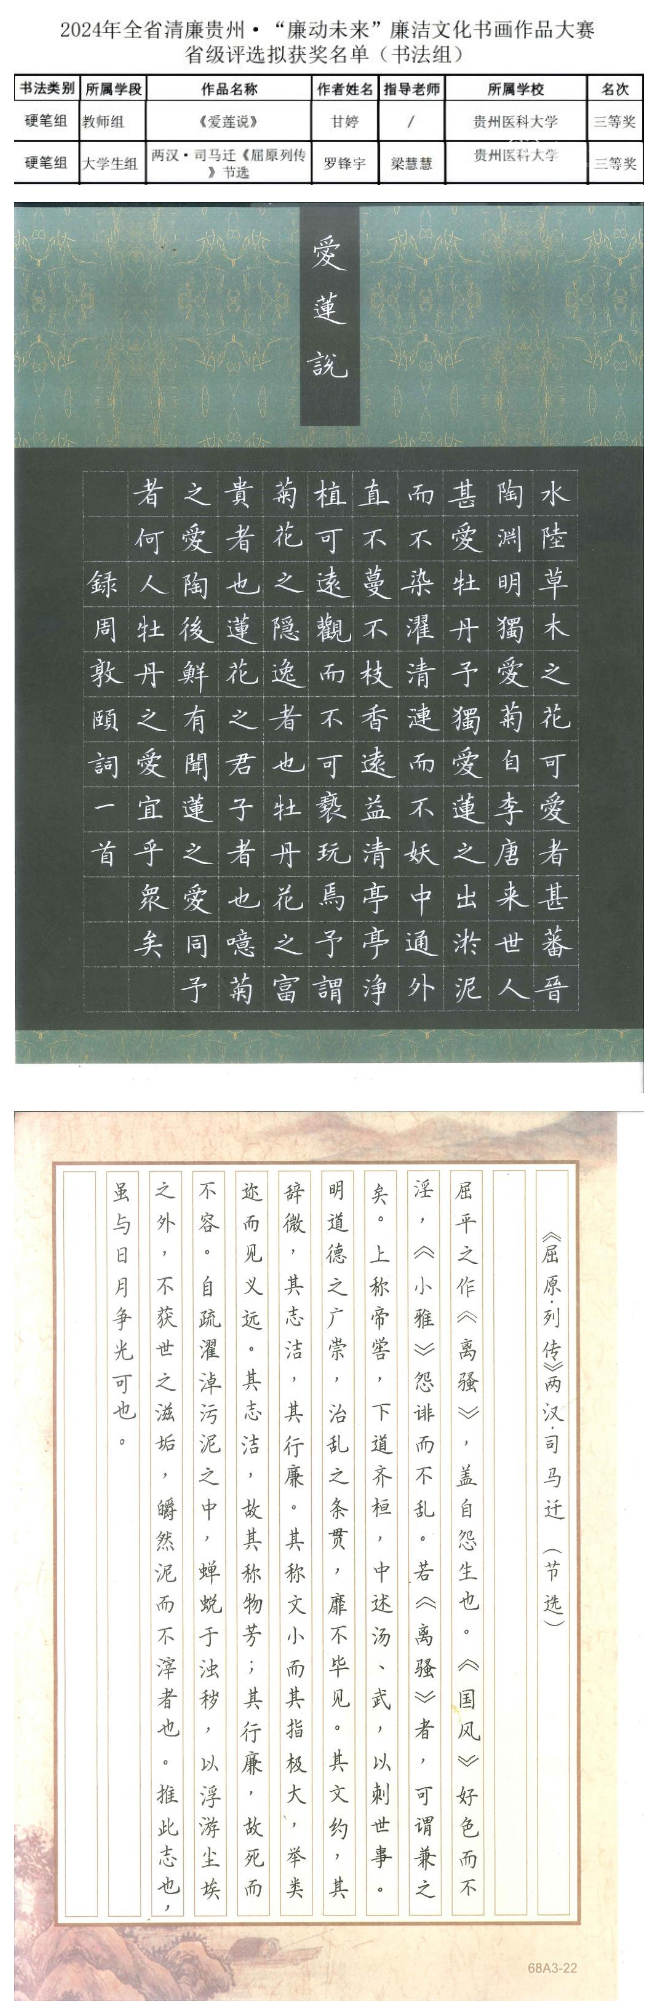 2024年全省清廉贵州·“廉动未来”廉洁文化书画作品大赛
省级评选拟获奖名单（书法组）
书法类别 所属学段 作品名称 作者姓名 指导老师 所属学校 名次
硬笔组 教师组 《爱莲说》 甘婷 / 贵州医科大学 三等奖
硬笔组 大学生组 两汉·司马迁《屈原列传》节选 罗锋宇 梁慧慧 贵州医科大学 三等奖
愛蓮説
水陸草木之花可愛者甚蕃晉
陶渊明獨愛菊自李唐来世人
甚愛牡丹予獨愛蓮之出淤泥
而不染濯清漣而不妖中通外
直不蔓不枝香遠益清亭亭净
植可遠觀而不可褻玩焉予謂
菊花之隠逸者也牡丹花之富
貴者也蓮花之君子者也噫菊
之愛陶後鮮有聞蓮之愛同予
者何人牡丹之愛宜乎衆矣
録周敦頤詞一首
《屈原·列传》两汉·司马迁（节选）
屈平之作《离骚》，盖自怨生也。《国风》好色而不
淫，《小雅》怨诽而不乱。若《离骚》者，可谓兼之
矣。上称帝喾，下道齐桓，中述汤、武，以刺世事。
明道德之广崇，治乱之条贯，靡不毕见。其文约，其
辞微，其志洁，其行廉。其称文小而其指极大，举类
迩而见义远。其志洁，故其称物芳；其行廉，故死而
不容。自疏濯淖污泥之中，蝉蜕于浊秽，以浮游尘埃
之外，不获世之滋垢，皭然泥而不滓者也。推此志也，
虽与日月争光可也。
68A3-22